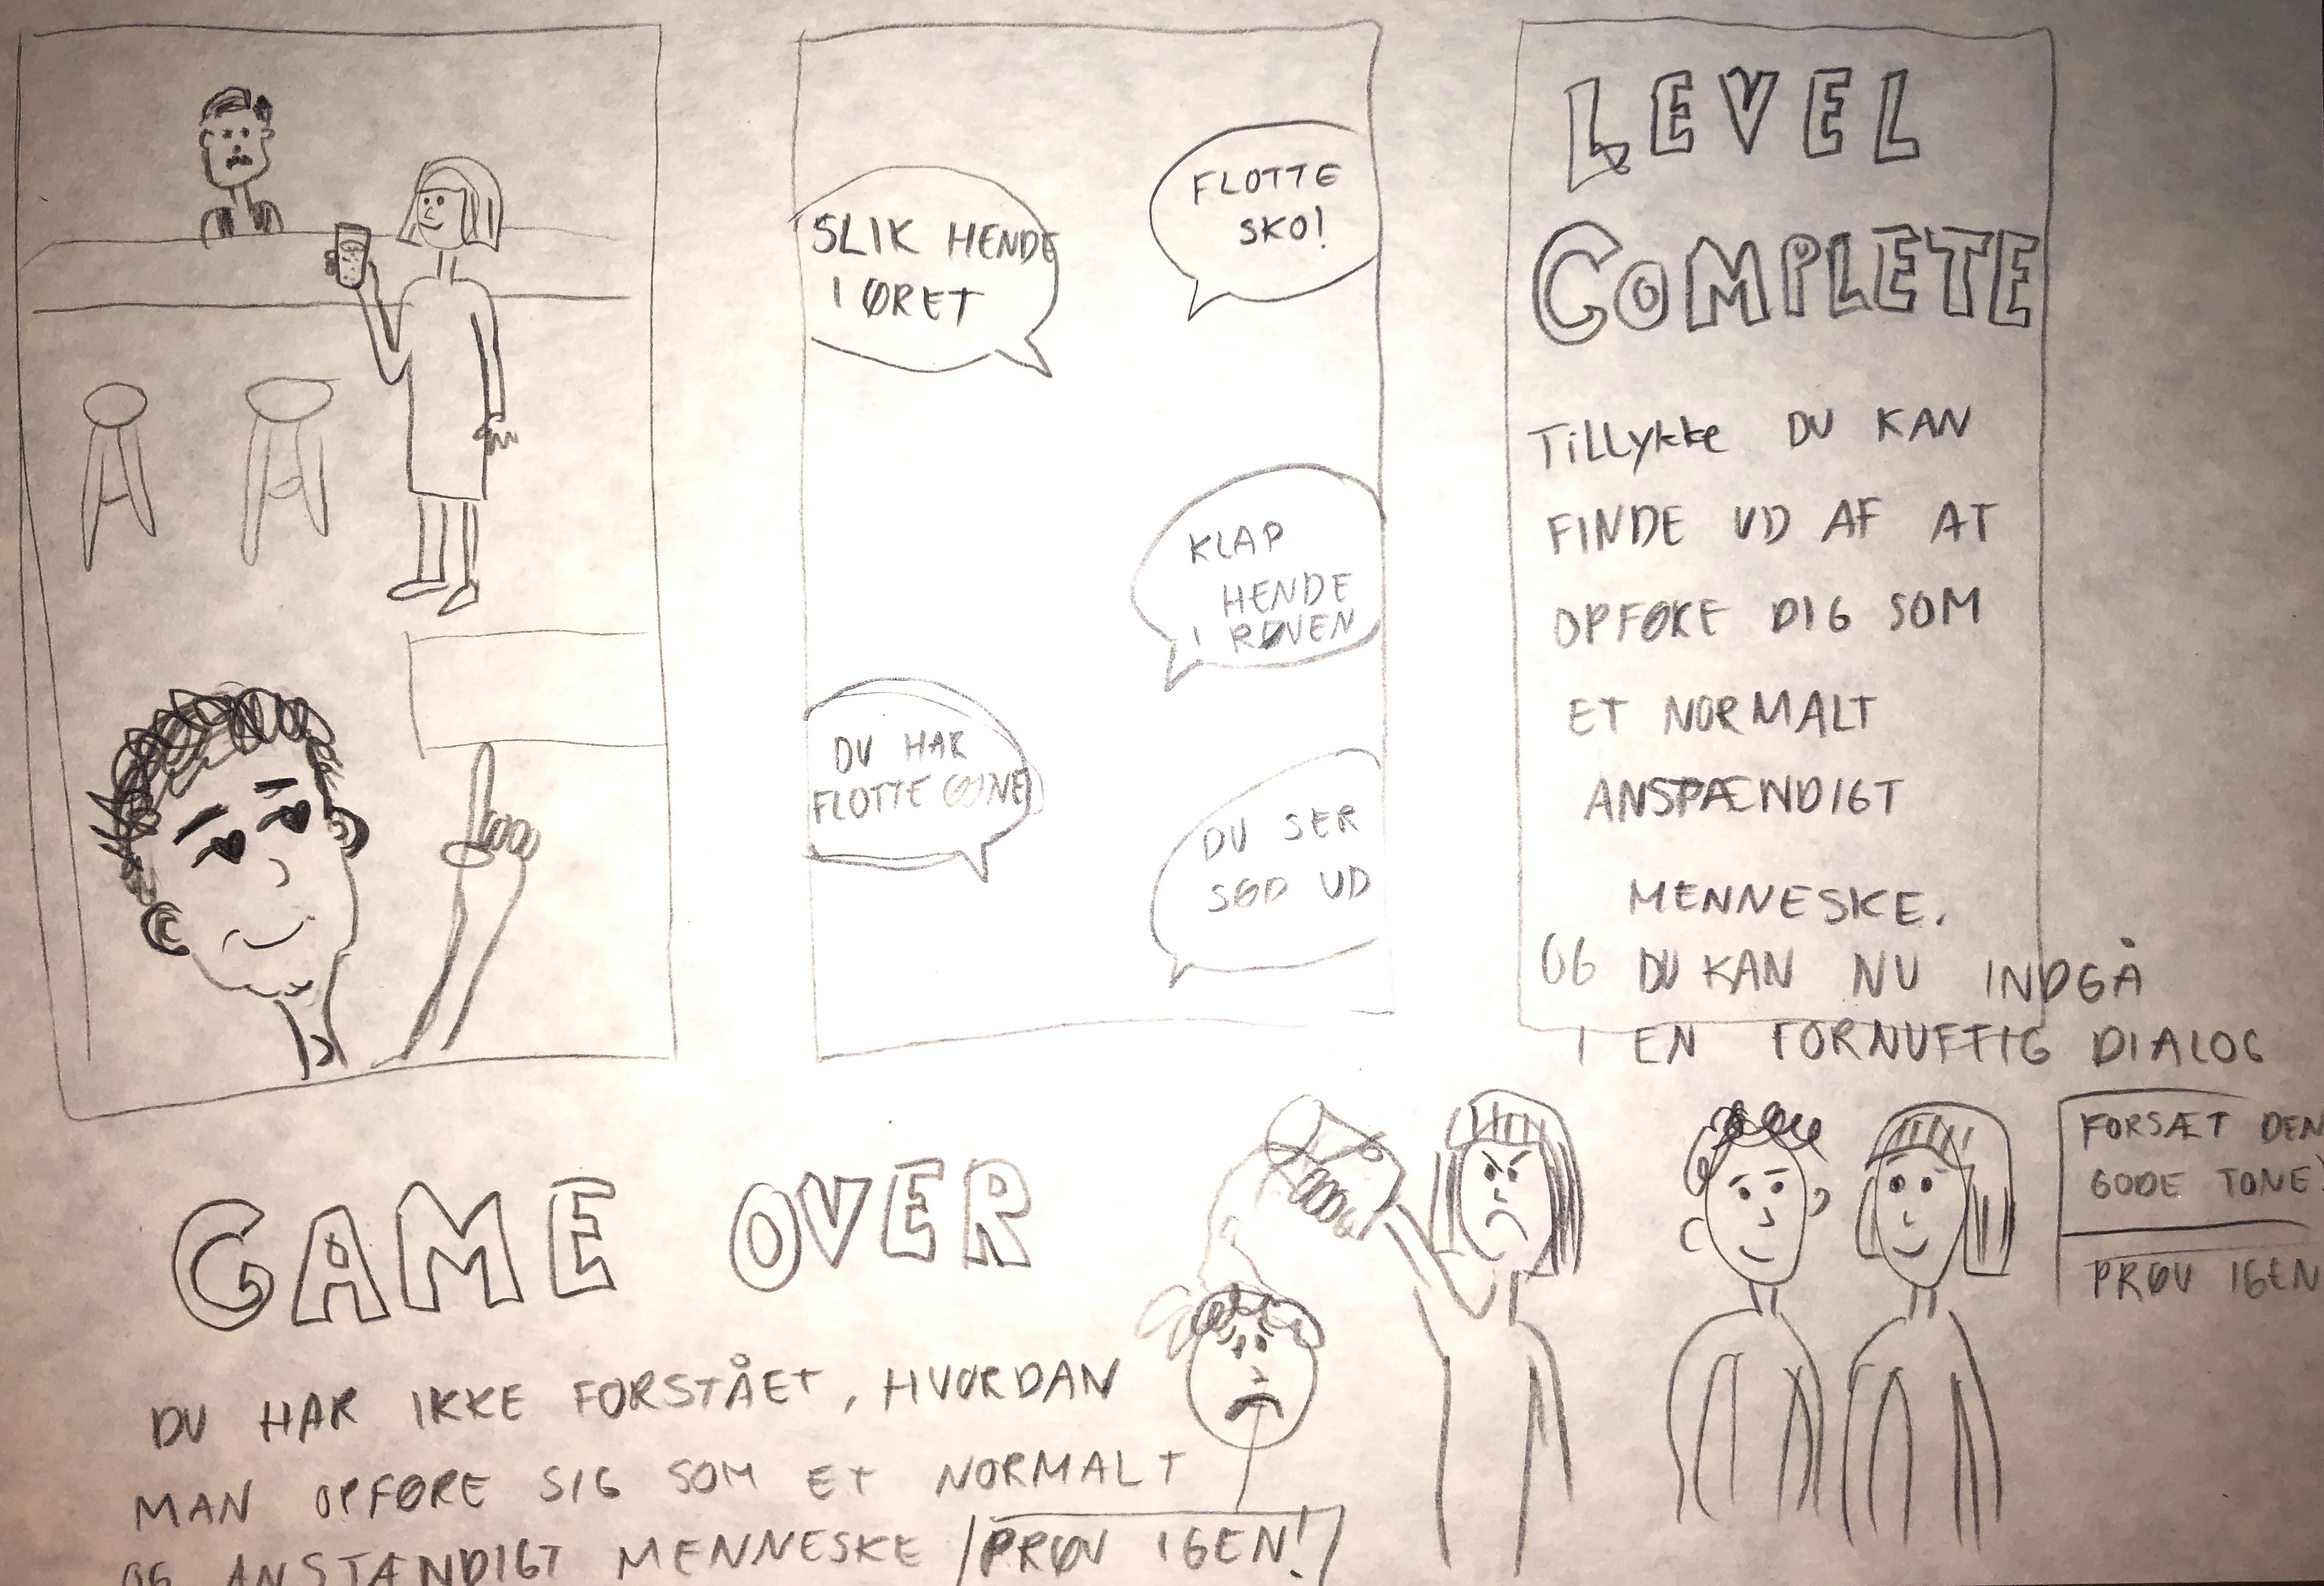 SLIK HENDE
I ØRET
FLOTTE
SKO!
KLAP
HENDE
I RØVEN
DU HAR
FLOTTE ØJNE
DU SER
SØD UD
LEVEL
COMPLETE
TiLLykke DU KAN
FINDE UD AF AT
OPFØRE DIG SOM
ET NORMALT
ANSPÆNDIGT
MENNESKE.
OG DU KAN NU INDGÅ
I EN FORNUFTIG DIALOG
FORSÆT DEN
GODE TONE!
PRØV IGEN
GAME OVER
DU HAR IKKE FORSTÅET, HVORDAN
MAN OPFØRE SIG SOM ET NORMALT
OG ANSTÆNDIGT MENNESKE
PRØV IGEN!